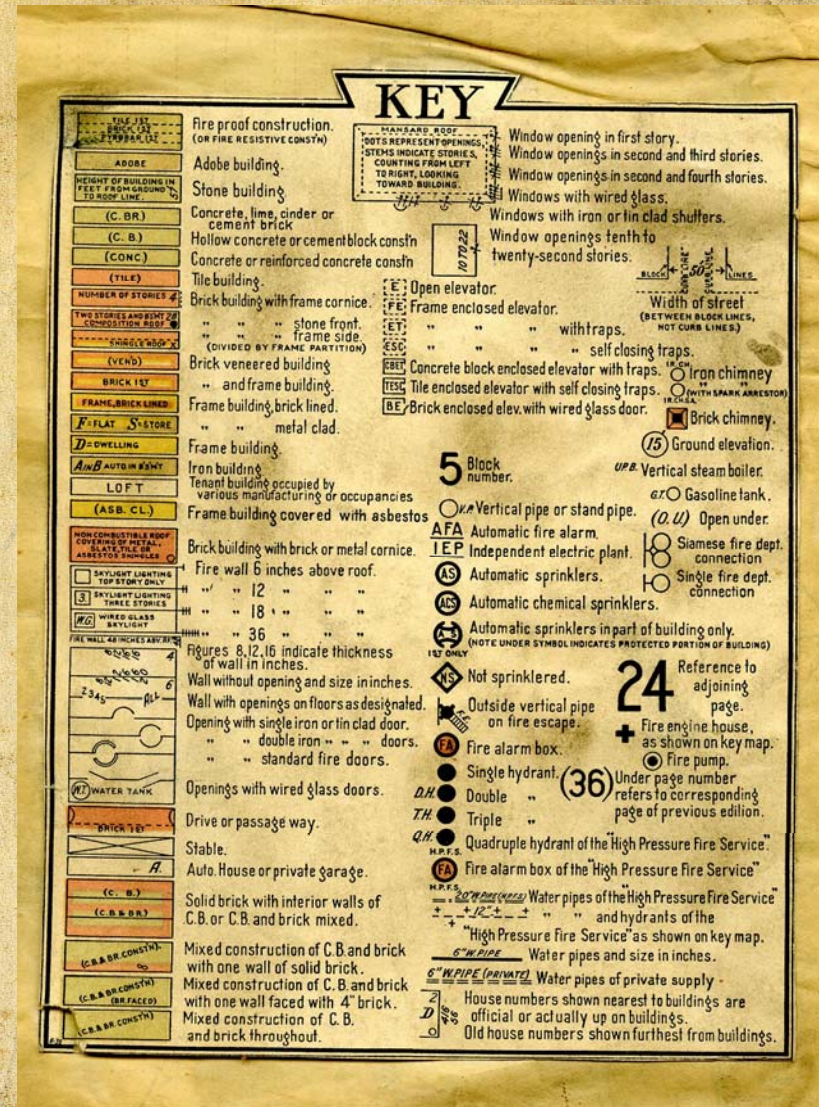 KEY
TILE 1ST
BRICK 1ST
PYROBAR 1ST
Fire proof construction.
(OR FIRE RESISTIVE CONST'N)
ADOBE
Adobe building.
HEIGHT OF BUILDING IN
FEET FROM GROUND
TO ROOF LINE.
Stone building
(C. BR.)
Concrete, lime, cinder or
cement brick
(C. B.)
Hollow concrete or cement block const'n
(CONC.)
Concrete or reinforced concrete const'n
(TILE)
Tile building.
NUMBER OF STORIES 4
Brick building with frame cornice.
TWO STORIES AND B'SM'T 2B
COMPOSITION ROOF
" " " stone front.
SHINGLE ROOF X
" " " frame side.
(DIVIDED BY FRAME PARTITION)
(VEN'D)
Brick veneered building
BRICK 1ST
" and frame building.
FRAME, BRICK LINED
Frame building, brick lined.
F=FLAT S=STORE
" " metal clad.
D=DWELLING
Frame building.
A IN B AUTO IN B'SM'T
Iron building
LOFT
Tenant building occupied by
various manufacturing or occupancies
(ASB. CL.)
Frame building covered with asbestos
NON COMBUSTIBLE ROOF
COVERING OF METAL,
SLATE, TILE OR
ASBESTOS SHINGLES
Brick building with brick or metal cornice.
SKYLIGHT LIGHTING
TOP STORY ONLY
Fire wall 6 inches above roof.
3. SKYLIGHT LIGHTING
THREE STORIES
" " 12 " " "
" " 18 " " "
W.G. WIRED GLASS
SKYLIGHT
" " 36 " " "
FIRE WALL 48 INCHES ABV. RF.
4
Figures 8,12,16 indicate thickness
of wall in inches.
6
Wall without opening and size in inches.
2345 ALL
Wall with openings on floors as designated.
Opening with single iron or tin clad door.
" " double iron " " " doors.
" " standard fire doors.
W.T. WATER TANK
Openings with wired glass doors.
BRICK 1ST
Drive or passage way.
Stable.
A.
Auto. House or private garage.
(C. B.)
(C.B.& BR.)
Solid brick with interior walls of
C.B. or C.B. and brick mixed.
(C.B.& BR.CONST'N).
Mixed construction of C.B. and brick
with one wall of solid brick.
(C.B.& BR.CONST'N)
(BR.FACED)
Mixed construction of C.B. and brick
with one wall faced with 4" brick.
(C.B.& BR.CONST'N)
Mixed construction of C. B.
and brick throughout.
MANSARD ROOF
DOTS REPRESENT OPENINGS,
STEMS INDICATE STORIES,
COUNTING FROM LEFT
TO RIGHT, LOOKING
TOWARD BUILDING.
Window opening in first story.
Window openings in second and third stories.
Window openings in second and fourth stories.
Windows with wired glass.
Windows with iron or tin clad shutters.
10 TO 22
Window openings tenth to
twenty-second stories.
BLOCK 50' LINES
Width of street
(BETWEEN BLOCK LINES,
NOT CURB LINES.)
E Open elevator.
FE Frame enclosed elevator.
ET " " " with traps.
ESC " " " self closing traps.
CBET Concrete block enclosed elevator with traps.
TESC Tile enclosed elevator with self closing traps.
BE Brick enclosed elev. with wired glass door.
IR.CH. Iron chimney
IR.CH.S.A. " " (WITH SPARK ARRESTOR)
Brick chimney.
15 Ground elevation.
5 Block
number.
U.P.B. Vertical steam boiler.
G.T. Gasoline tank.
V.P. Vertical pipe or stand pipe.
(O. U.) Open under.
AFA Automatic fire alarm.
IEP Independent electric plant.
Siamese fire dept.
connection
Single fire dept.
connection
AS Automatic sprinklers.
ACS Automatic chemical sprinklers.
A S Automatic sprinklers in part of building only.
1ST ONLY (NOTE UNDER SYMBOL INDICATES PROTECTED PORTION OF BUILDING)
NS Not sprinklered.
Outside vertical pipe
on fire escape.
24 Reference to
adjoining
page.
Fire engine house,
as shown on key map.
FA Fire alarm box.
Fire pump.
Single hydrant.
D.H. Double "
T.H. Triple "
(36) Under page number
refers to corresponding
page of previous edition.
Q.H. Quadruple hydrant of the "High Pressure Fire Service."
H.P.F.S.
FA Fire alarm box of the "High Pressure Fire Service"
H.P.F.S.
20" W.PIPE (H.P.F.S.) Water pipes of the "High Pressure Fire Service"
12" " " and hydrants of the
"High Pressure Fire Service" as shown on key map.
6" W.PIPE Water pipes and size in inches.
6" W.PIPE (PRIVATE) Water pipes of private supply
2
D
House numbers shown nearest to buildings are
official or actually up on buildings.
Old house numbers shown furthest from buildings.